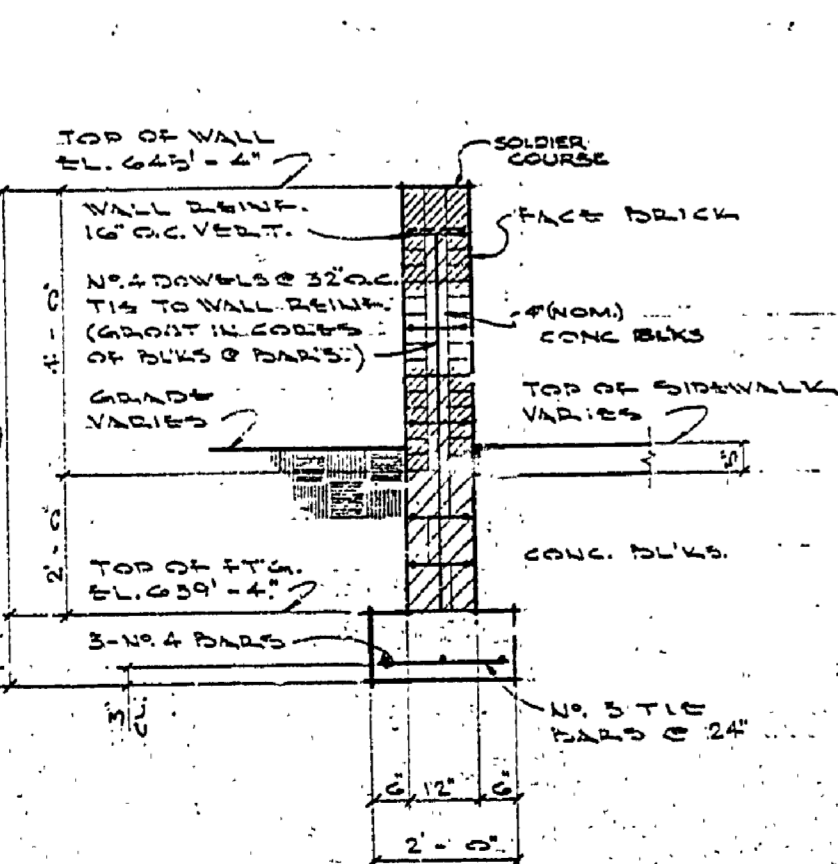 TOP OF WALL
EL. 645' - 4"
SOLDIER
COURSE
WALL REINF.
16" O.C. VERT.
FACE BRICK
Nº.4 DOWELS @ 32" O.C.
TIE TO WALL REINF.
(GROUT IN CORES
OF BLKS @ BARS.)
4" (NOM.)
CONC BLKS
4' - 0"
GRADE
VARIES
TOP OF SIDEWALK
VARIES
5"
2' - 0"
CONC. BL'KS.
TOP OF FT'G.
EL. 639' - 4"
3-Nº.4 BARS
3"
CL
Nº. 3 TIE
BARS @ 24"
6" 12" 6"
2' - 0"